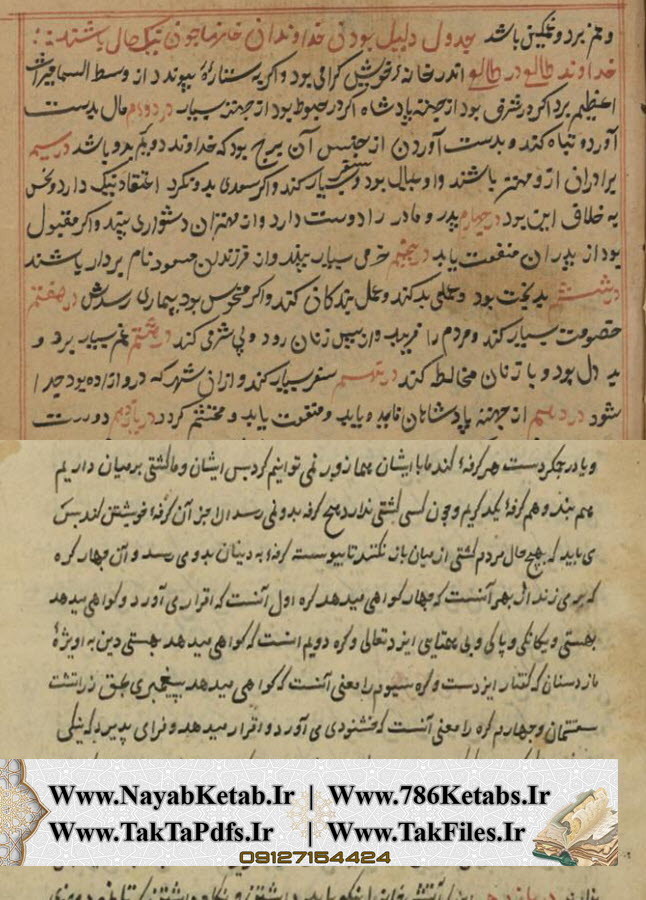 و غم برد و غمگین باشد جدول دلیل بودن خداوندان خانها چون نیکحال باشند
خداوند طالع در طالع اندر خانهٔ خویش گرامی بود و اگر بستارهٔ پیوندد از وسط السما
عظیم برد اگر در شرف بود از جهته پادشاه اگر در هبوط بود از جهته بسیار در دوم مال بدست
آورد و تباه کند و بدست آوردن از جنس آن برج بود که خداوند دویم بدو باشد در سیم
برادرانی ازو مهتر باشند و او سفر بسیار کند و اگر سعدی بدو نکرد اعتقاد نیک دارد و نحس
به خلاف این بود در چهارم پدر و مادر را دوست دارد و از مهتران دشواری بیند و اگر مقبول
بود از پدران منفعت یابد در پنجم خرمی بسیار بیند و از فرزندان مسعود نام بردار باشند
در ششم بدبخت بود و عملی بد کند و عمل بندکان کند و اگر منحوس بود بیماری رسدش در هفتم
خصومت بسیار کند و مردم را فریبد و از سپس زنان رود و بی شرمی کند در هشتم غم بسیار برد و
دل بود و با زنان مخالطه کند در نهم سفر بسیار کند و از آن شهر که درو زاده بود جدا
شود در دهم از جهته پادشاهان فایده یابد و منفعت یابد و محتشم کردد در یازدهم دوست
و یا در جکردست هر کرفهٔ کند ما با ایشان هما زور نمی توانیم کرد پس ایشان و ما کشتی بر میان داریم
هم بند و هم کرفهٔ یکدیگریم و چون کسی کشتی ندارد هیچ کرفه بدو نمی رسد الا جز آن کرفهٔ خویشتن کند پس
می باید که بهیچ حال مردم کشتی از میان باز نکنند تا پیوسته کرفهٔ بهدینان بدو می رسد و آن چهار کره
که بر می زند از بهر آنست که چهار کواهی میدهد کره اول آنست که اقرار می آورد و کواهی میدهد
بهستی و یکانکی و پاکی و بی همتایی ایزد تعالی و کره دویم آنست که کواهی میدهد بهستی دین به اویژهٔ
مازدسنان که کفتار ایزدست و کره سیوم را معنی آنست که کواهی میدهد به پیغمبری بحق زراتشت
سفنتمان و چهارم کره را معنی آنست که خشنودی می آورد و اقرار میدهد و فرا می پذیرد که نیکی
Www.NayabKetab.Ir | Www.786Ketabs.Ir
Www.TakTaPdfs.Ir | Www.TakFiles.Ir
09127154424